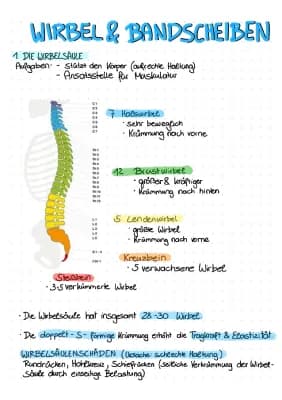 WIRBEL & BANDSCHEIBEN
1. DIE WIRBELSÄULE
Aufgaben: - stützt den Körper (aufrechte Haltung)
- Ansatzstelle für Muskulatur
7 Halswirbel
· sehr beweglich
· Krümmung nach vorne
12 Brustwirbel
· größer & kräftiger
· Krümmung nach hinten
5 Lendenwirbel
· größte Wirbel
· Krümmung nach vorne
Kreuzbein
· 5 verwachsene Wirbel
Steißbein
· 3-5 verkümmerte Wirbel
· Die Wirbelsäule hat insgesamt 28-30 Wirbel.
· Die doppelt-S-förmige Krümmung erhöht die Tragkraft & Elastizität
WIRBELSÄULENSCHÄDEN (Ursache schlechte Haltung)
Rundrücken, Hohlkreuz, Schiefrücken (seitliche Verkrümmung der Wirbel-
säule durch einseitige Belastung)